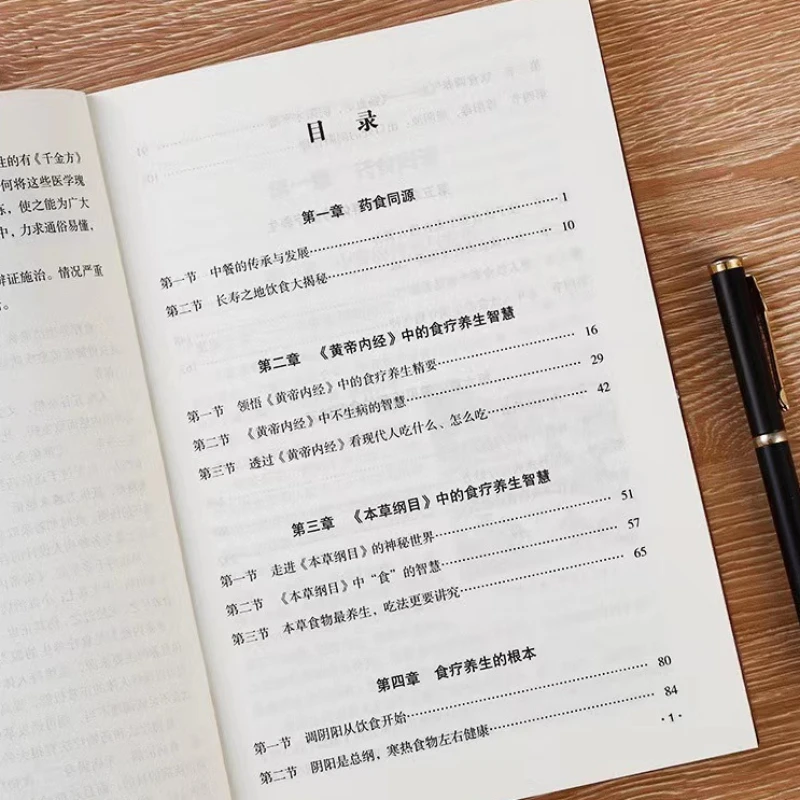 生的有《千金方》
何将这些医学瑰
东，使之能为广大
中，力求通俗易懂，
辨证施治。情况严重
目 录
第一章 药食同源
第一节 中餐的传承与发展……1
第二节 长寿之地饮食大揭秘……10
第二章 《黄帝内经》中的食疗养生智慧
第一节 领悟《黄帝内经》中的食疗养生精要……16
第二节 《黄帝内经》中不生病的智慧……29
第三节 透过《黄帝内经》看现代人吃什么、怎么吃……42
第三章 《本草纲目》中的食疗养生智慧
第一节 走进《本草纲目》的神秘世界……51
第二节 《本草纲目》中“食”的智慧……57
第三节 本草食物最养生，吃法更要讲究……65
第四章 食疗养生的根本
第一节 调阴阳从饮食开始……80
第二节 阴阳是总纲，寒热食物左右健康……84
·1·